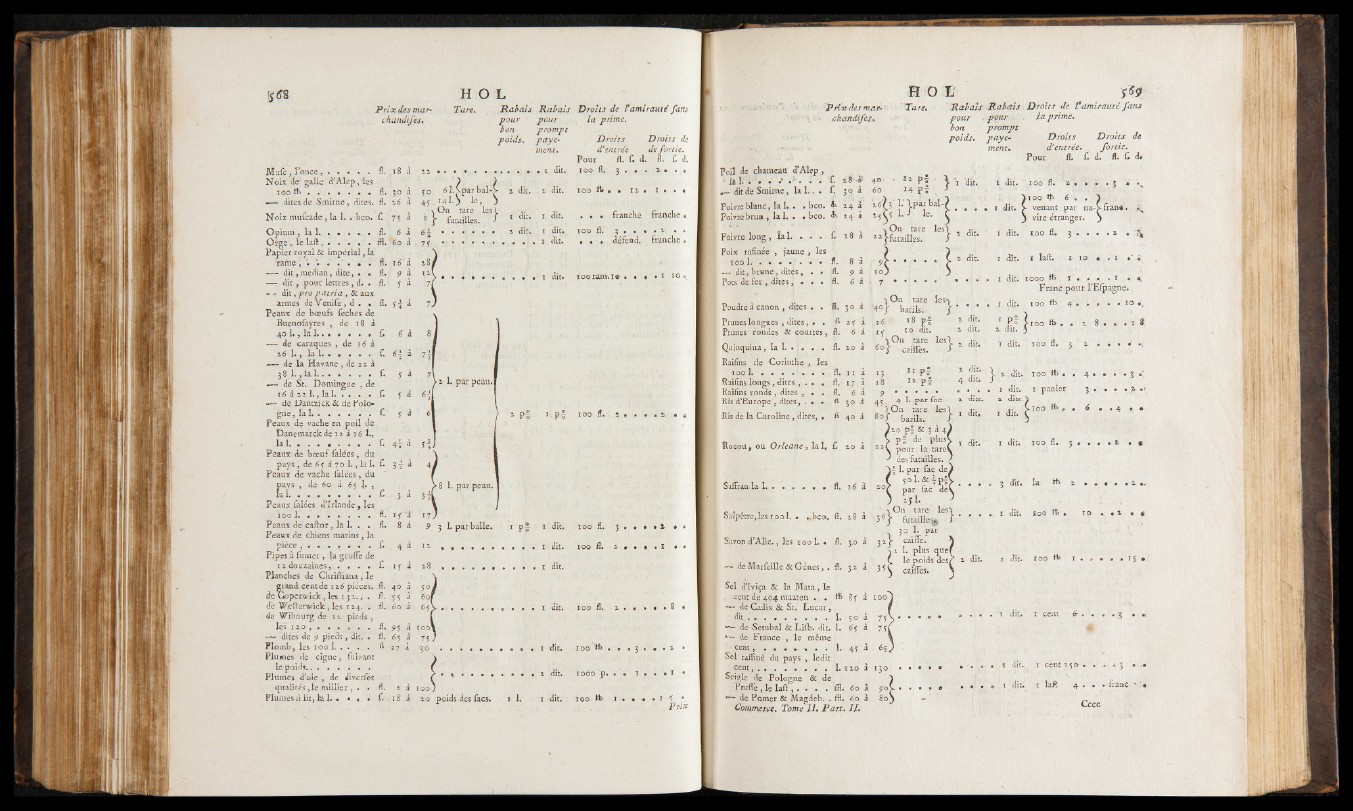 568 H O L
Prix des marchandises. Tare. Rabais pour bon poids. Rabais pour prompt payement. Droits de l'amirauté sans la prime.
Droits d'entrée Droits de sortie.
Pour fl. ſ. d. fl. ſ. d.
Musc, l'once, . . . . . . fl. 18 à 22 . . . . . . . . . . . 1 dit. 100 fl. 3 . . . 2 . . .
Noix de galle d'Alep, les
100 ℔ . . . . . . . fl. 30 à 50 6 l. par bal- 2 dit. 2 dit. 100 ℔ . . 12 . 1 . . .
— dites de Smirne, dites. fl. 26 à 45 14 l. le,
Noix muscade, la l. . bco. ſ. 75 à On tare les futailles. 1 dit. 1 dit. . . . franche franche .
Opium, la l. . . . . . . fl. 6 à 6½ . . . . . . 2 dit. 1 dit. 100 fl. 3 . . . . 2 . .
Orge, le last, . . . . . . ffl. 60 à 75 . . . . . . . . . . 1 dit. . . . défend. franche .
Papier royal & impérial, la
rame, . . . . . . . fl. 16 à 28
— dit, median, dite, . . fl. 9 à 12 . . . . . . . . . . 1 dit. 100 ram. 10 . . . . 1 10 .
— dit, pour lettres, d. . fl. 5 à 7
— dit, pro patria, & aux
armes de Venise, d . . fl. 5¼ à 7
Peaux de bœufs seches de
Buenosayres, de 18 à
40 l., la l. . . . . . . ſ. 6 à 8
— de caraques, de 16 à
26 l., la l. . . . . . . ſ. 6½ à 7½
— de la Havane, de 22 à
38 l., la l. . . . . . . ſ. 5 à 7
— de St. Domingue, de 2 l. par peau.
16 à 22 l., la l. . . . . ſ. 5 à 6½
— de Dantzick & de Polo-
gne, la l. . . . . . . ſ. 5 à 6 2 p° 1 p° 100 fl. 2 . . . . 2 . .
Peaux de vache en poil de
Danemarck de 12 à 16 l.,
la l. . . . . . . . . ſ. 4½ à 5½
Peaux de bœuf salées, du
pays, de 65 à 70 l., la l. ſ. 3½ à 4
Peaux de vache salées, du
pays, de 60 à 65 l., 8 l. par peau.
la l. . . . . . . . . ſ. 3 à 3½
Peaux salées d'Irlande, les
100 l. . . . . . . . fl. 15 à 17
Peaux de castor, la l. . . fl. 8 à 9 3 l. par balle. 1 p° 1 dit. 100 fl. 3 . . . . 2 . .
Peaux de chiens marins, la
piéce, . . . . . . . ſ. 4 à 12 . . . . . . . . . 1 dit. 100 fl. 2 . . . . 1 . .
Pipes à fumer, la grosse de
12 douzaines, . . . . ſ. 15 à 28 . . . . . . . . . 1 dit.
Planches de Christiana, le
grand cent de 126 piéces. fl. 40 à 50
de Coperwick, les 132., . fl. 55 à 60
de Westerwick, les 124. . fl. 60 à 65 . . . . . . . . . 1 dit. 100 fl. 2 . . . . . 8 .
de Wibourg de 12 pieds,
les 120, . . . . . . . fl. 95 à 100
— dites de 9 pieds, dit. . fl. 65 à 75
Plomb, les 100 l. . . . . ß 27 à 30 . . . . . . . . . 1 dit. 100 ℔ . . . 3 . . . 2 .
Plumes de cigne, suivant
le poids. . . . . . .
Plumes d'oie, de diverses . . . . . . . . . 2 dit. 1000 p. . . 1 . . . 1 .
qualités, le millier, . . fl. 2 à 100
Plumes à lit, la l. . . . . ſ. 18 à 20 poids des sacs. 1 l. 1 dit. 100 ℔ 1 . . . . 1 5 .
Prix
H O L 569
Prix des marchandises. Tare. Rabais pour bon poids. Rabais pour prompt payement. Droits de l'amirauté sans la prime.
Droits d'entrée. Droits de sortie.
Pour fl. ſ. d. fl. ſ. d.
Poil de chameau d'Alep,
la l. . . . . . . . . ſ. 28 à 40 12 p° 1 dit. 1 dit. 100 fl. 2 . . . . 3 . .
— dit de Smirne, la l. . . ſ. 30 à 60 14 p°
Poivre blanc, la l. . . bco. 24 à 26 3 l. par bal- . . . . 1 dit. 100 ℔ 6 . . venant par na- franc.
Poivre brun, la l. . . bco. 14 à 25 5 l. le. vire étranger.
Poivre long, la l. . . . ſ. 18 à 22 On tare les futailles. 2 dit. 1 dit. 100 fl. 3 . . . . 2 .
Poix rafinée, jaune, les
100 l. . . . . . . . fl. 8 à 9 . . . . . 2 dit. 1 dit. 1 last. 1 10 . . 1
— dit, brune, dites, . . fl. 9 à 10
Pots de fer, dites, . . . fl. 6 à 7 . . . . . . . . . 1 dit. 1000 ℔ 1 . . . . 1 . .
Franc pour l'Espagne.
Poudre à canon, dites . . fl. 30 à 40 On tare les barils. . . . . 1 dit. 100 ℔ 4 . . . . . 10 .
Prunes longues, dites, . . ß 25 à 26 18 p° 2 dit. 1 p° 100 ℔ . . 2 8 . . . 1 8
Prunes rondes & courtes, fl. 6 à 15 10 dit. 2 dit. 2 dit.
Quinquina, la l. . . . . fl. 20 à 60 On tare les caisses. 2 dit. 1 dit. 100 fl. 3 2 . . . .
Raisins de Corinthe, les
100 l. . . . . . . . fl. 11 à 13 11 p° 2 dit. 2 dit. 100 ℔ . . 4 . . . . 3
Raisins longs, dites, . . . fl. 17 à 18 12 p° 4 dit.
Raisins ronds, dites, . . fl. 6 à 9 . . . . . . . . . 1 dit. 1 panier 3 . . . . 2 .
Ris d'Europe, dites, . . . ß 30 à 45 4 l. par sac 2 dit. 2 dit. 100 ℔ . . 6 . . 4 . .
Ris de la Caroline, dites, . ß 40 à 80 On tare les barils. 1 dit. 1 dit.
Rocou, ou Orleane, la l. ſ. 20 à 22 20 p° & 3 à 4 p° de plus pour la tare des futailles. 1 dit. 1 dit. 100 fl. 3 . . . . 2 . .
Saffran la l. . . . . . . fl. 16 à 20 ½ l. par sac de 50 l. & ½ p° par sac de 25 l. . . . . 3 dit. la ℔ 2 . . . . . 2 .
Salpêtre, les 100 l. . . bco. fl. 28 à 36 On tare les futailles . . . . 1 dit. 100 ℔ . 10 . . 2 . .
Savon d'Alic., les 100 l. . fl. 30 à 32 30 l. par caisse.
2 l. plus que le poids des caisses. 2 dit. 2 dit. 100 ℔ 1 . . . . . 15 .
— de Marseille & Gênes, . fl. 32 à 35
Sel d'Iviça & la Mata, le
cent de 404 maaten . . ℔ 85 à 100
— de Cadix & St. Lucar,
dit . . . . . . . . l. 50 à 75 . . . . . . . . . 1 dit. 1 cent 6 . . . . . 3 . .
— de Setubal & Lisb. dit. l. 65 à 75
— de France, le même
cent, . . . . . . . l. 45 à 65
Sel raffiné du pays, ledit
cent, . . . . . . . l. 120 à 130 . . . . . . . . . 1 dit. 1 cent 250 . . . . . 3 . .
Seigle de Pologne & de
Prusse, le last, . . . . ffl. 60 à 90 . . . . . . . . . 1 dit. 1 last 4 . . . franc .
— de Pomer & Magdeb. . ffl. 60 à 80
Commerce. Tome II. Part. II. Cccc